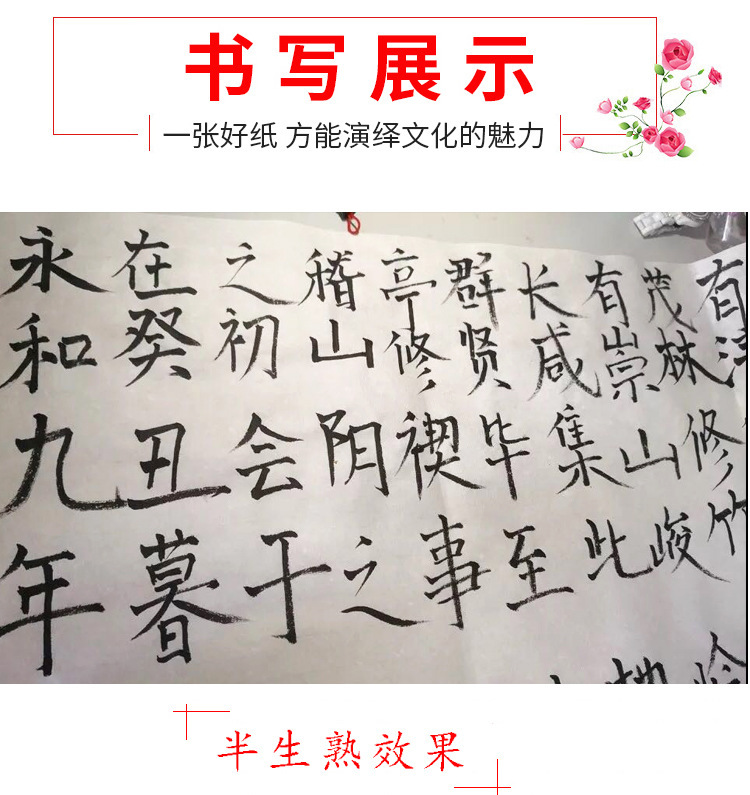 书写展示
一张好纸 方能演绎文化的魅力
永和九年
在癸丑暮
之初会于
稽山阴之
亭修禊事
群贤毕至
长咸集此
有崇山峻
茂林修竹
有
半生熟效果